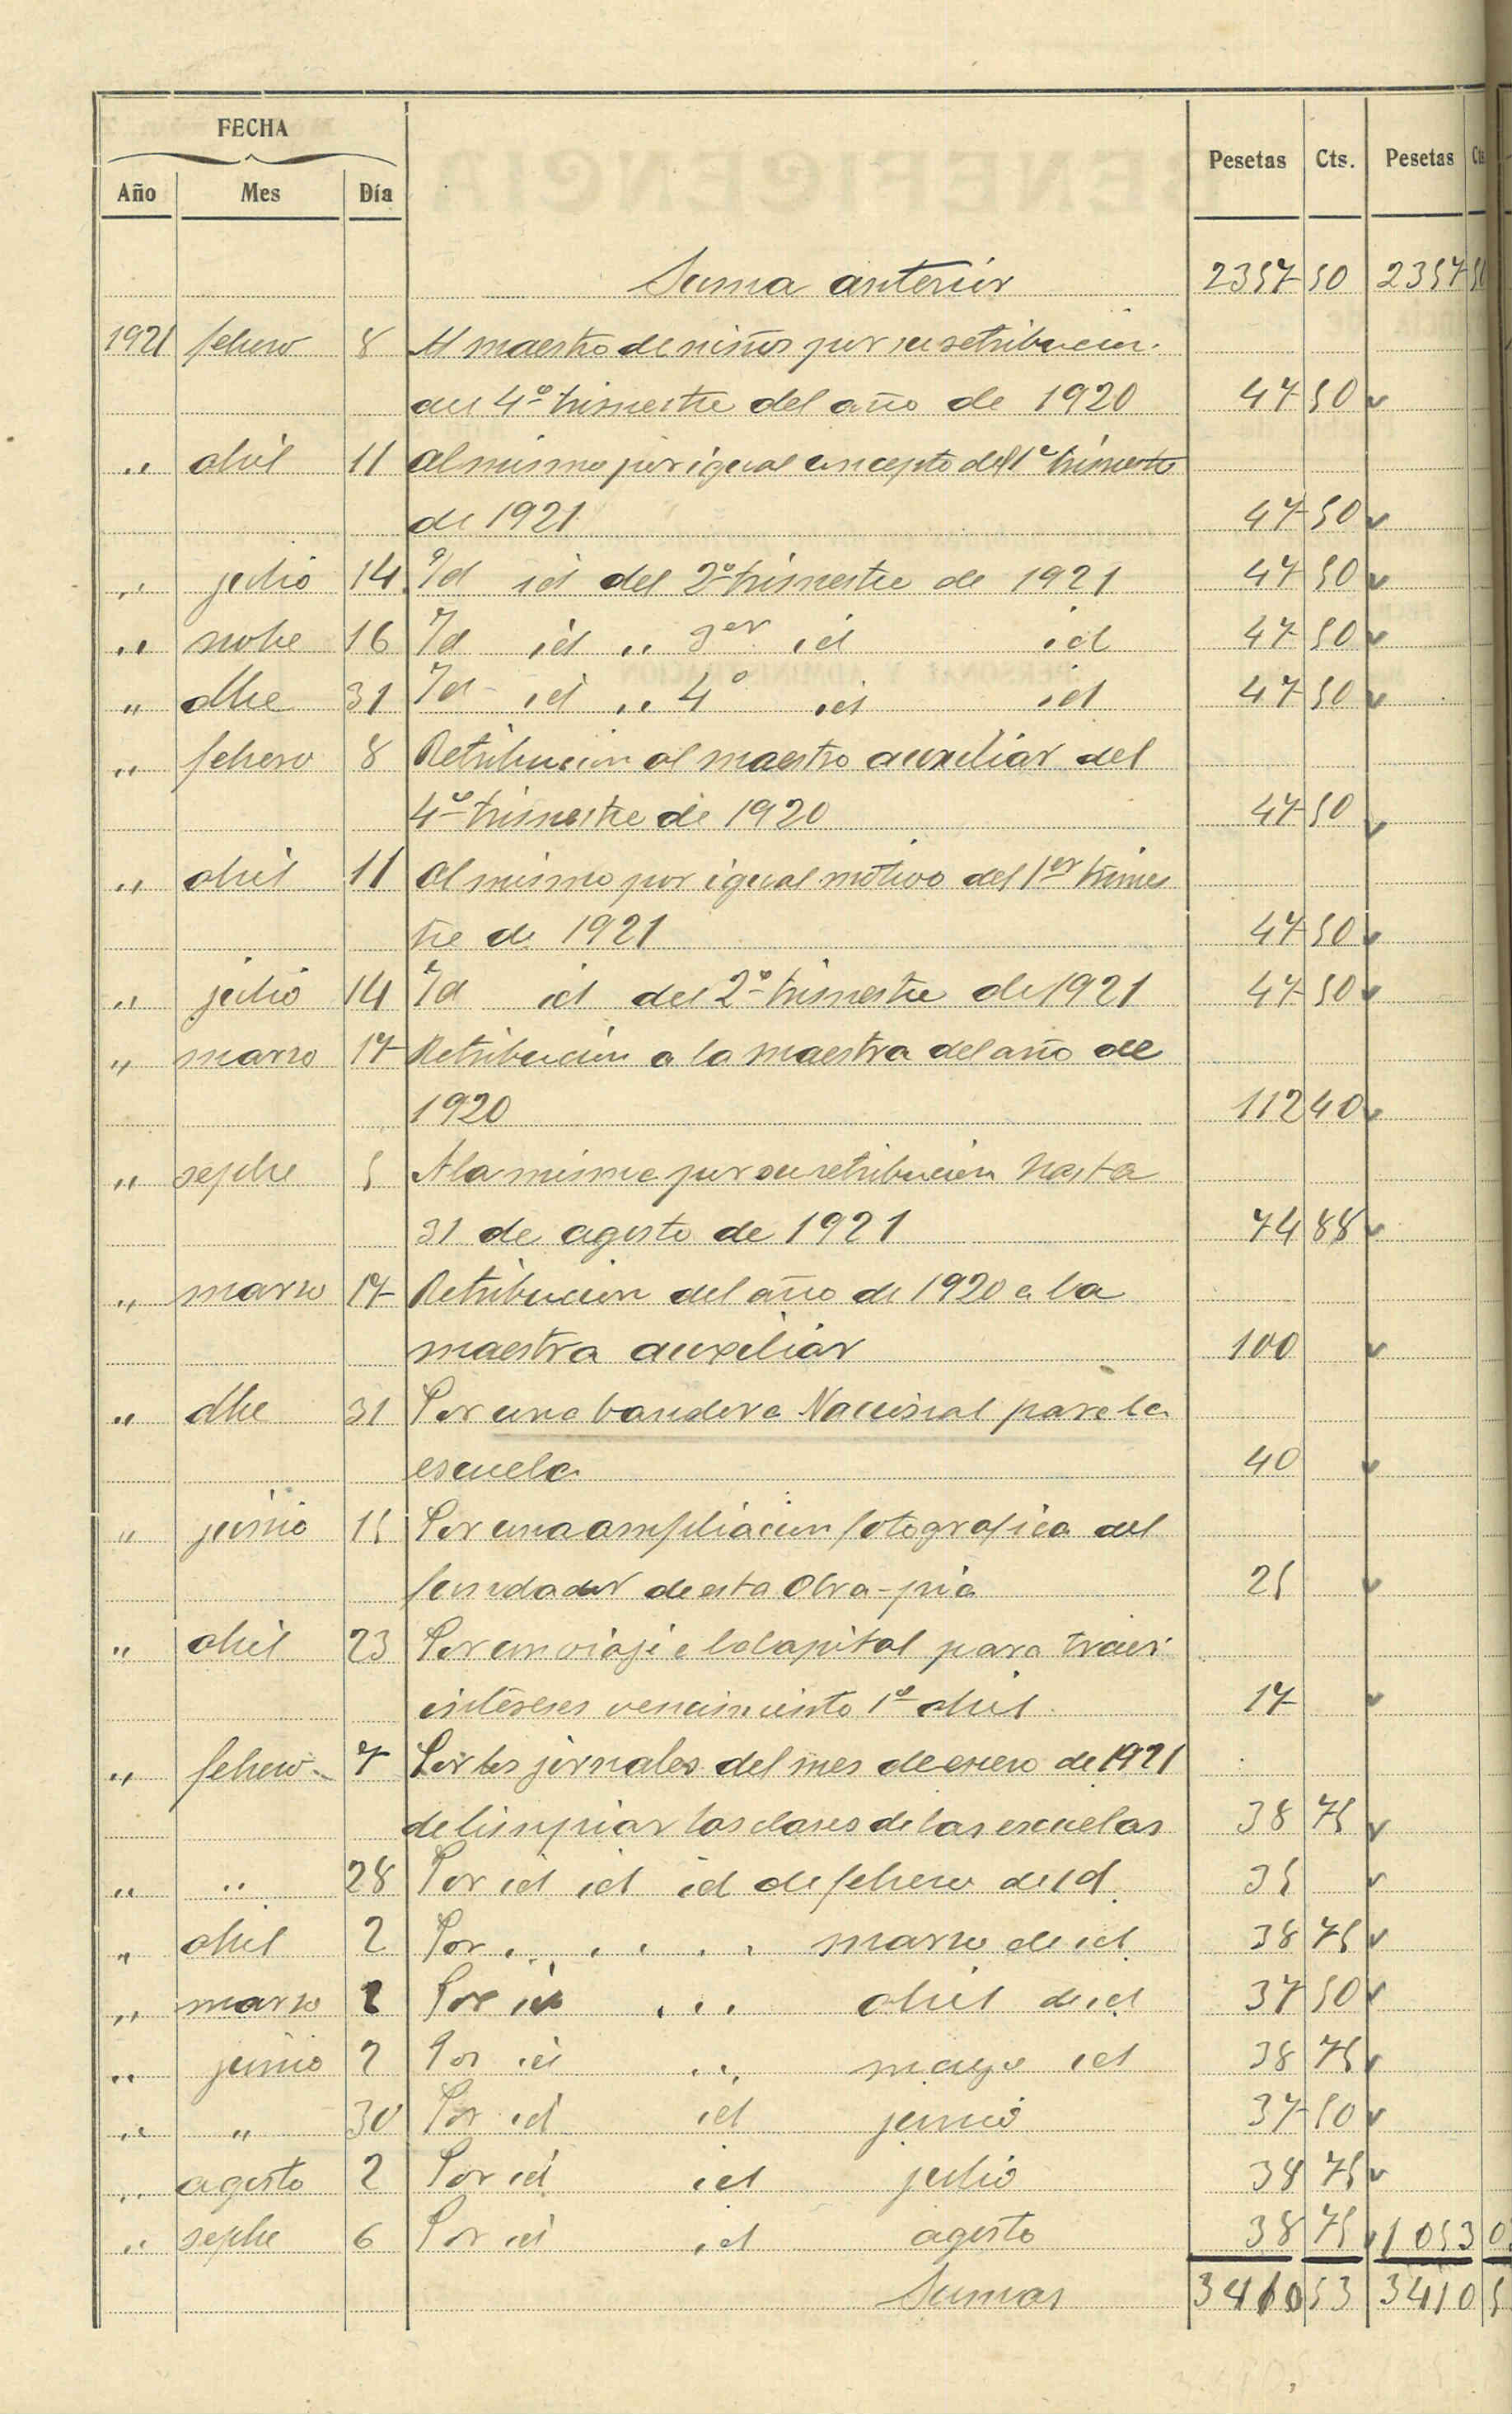 FECHA
Año Mes Día Pesetas Cts. Pesetas Cts
Suma anterior 2357 50 2357 50
1921 febrero 8 Al maestro de niños por su retribucion
del 4º trimestre del año de 1920 47 50
,, abril 11 Al mismo por igual concepto del 1er trimestre
de 1921 47 50
,, julio 14 Id id del 2º trimestre de 1921 47 50
,, nobe 16 Id id ,, 3er id id 47 50
,, dbe 31 Id id ,, 4º id id 47 50
,, febrero 8 Retribucion al maestro auxiliar del
4º trimestre de 1920 47 50
,, abril 11 Al mismo por igual motivo del 1er trimes
tre de 1921 47 50
,, julio 14 Id id del 2º trimestre de 1921 47 50
,, marzo 17 Retribucion a la maestra del año de
1920 112 40
,, sepbe 5 A la misma por su retribucion hasta
31 de agosto de 1921 74 88
,, marzo 17 Retribucion del año de 1920 a la
maestra auxiliar 100
,, dbe 31 Por una bandera Nacional para la
escuela 40
,, junio 15 Por una ampliacion fotografica del
fundador de esta Obra-pia 25
,, abril 23 Por un viaje a la Capital para traer
intereses vencimiento 1º abril 17
,, febrero 7 Por los jornales del mes de enero de 1921
de limpiar las clases de las escuelas 38 75
,, ,, 28 Por id id id de febrero de id 35
,, abril 2 Por , , , , , marzo de id 38 75
,, marzo 2 Por id , , , abril de id 37 50
,, junio 2 Por id ,, mayo id 38 75
,, ,, 30 Por id id junio 37 50
,, agosto 2 Por id id julio 38 75
,, sepbe 6 Por id id agosto 38 75 1053 0
Sumas 3410 53 3410 5